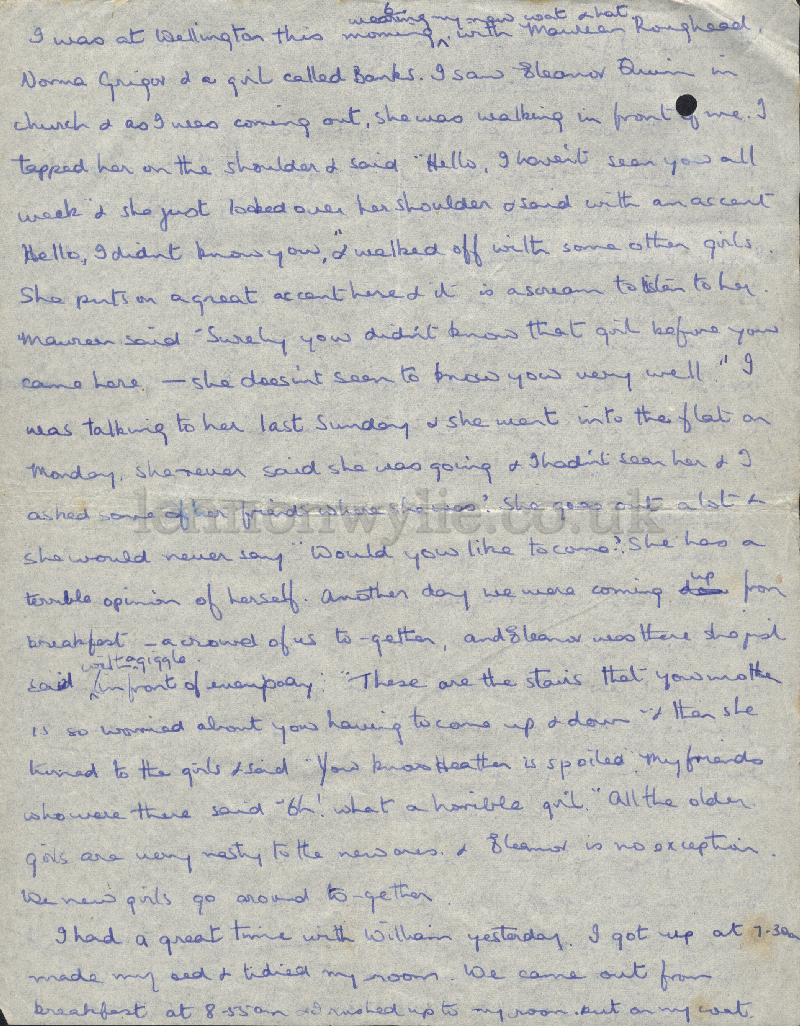 wearing my new coat & hat
I was at Wellington this morning, with Maureen Roughead,
Norma Grigor & a girl called Banks. I saw Eleanor Quin in
church & as I was coming out, she was walking in front of me. I
tapped her on the shoulder & said "Hello, I haven't seen you all
week" & she just looked over her shoulder & said with an accent
Hello, I didn't know you," & walked off with some other girls.
She puts on a great accent here & it is a scream to listen to her.
Maureen said "Surely you didn't know that girl before you
came here, — she doesn't seem to know you very well." I
was talking to her last Sunday & she went into the flat on
Monday, she never said she was going & I hadn't seen her & I
asked some of her friends where she was? She goes out a lot &
she would never say "Would you like to come?. She has a
terrible opinion of herself. Another day we were coming up from
breakfast – a crowd of us to-gether, and Eleanor was there she just
with a giggle
said in front of everybody: "These are the stairs that your mother
is so worried about you having to come up & down" & then she
turned to the girls & said "You know Heather is spoiled" My friends
who were there said "Oh! what a horrible girl." All the older
girls are very nasty to the new ones. & Eleanor is no exception.
We new girls go around to-gether.
I had a great time with William yesterday. I got up at 7-30am
made my bed & tidied my room. We came out from
breakfast at 8-55am & I rushed up to my room. put on my coat.
lennonwylie.co.uk